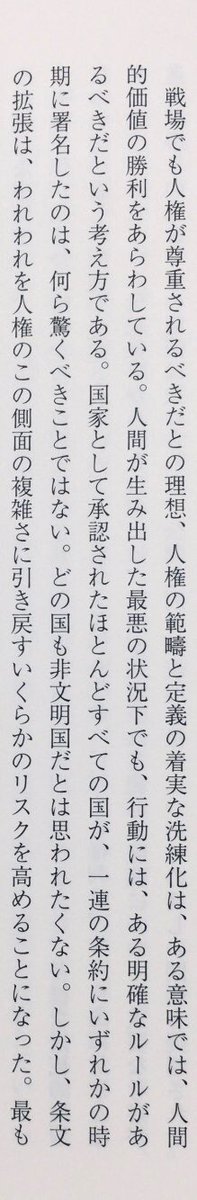 戦場でも人権が尊重されるべきだとの理想、人権の範疇と定義の着実な洗練化は、ある意味では、人間
的価値の勝利をあらわしている。人間が生み出した最悪の状況下でも、行動には、ある明確なルールがあ
るべきだという考え方である。国家として承認されたほとんどすべての国が、一連の条約にいずれかの時
期に署名したのは、何ら驚くべきことではない。どの国も非文明国だとは思われたくない。しかし、条文
の拡張は、われわれを人権のこの側面の複雑さに引き戻すいくらかのリスクを高めることになった。最も